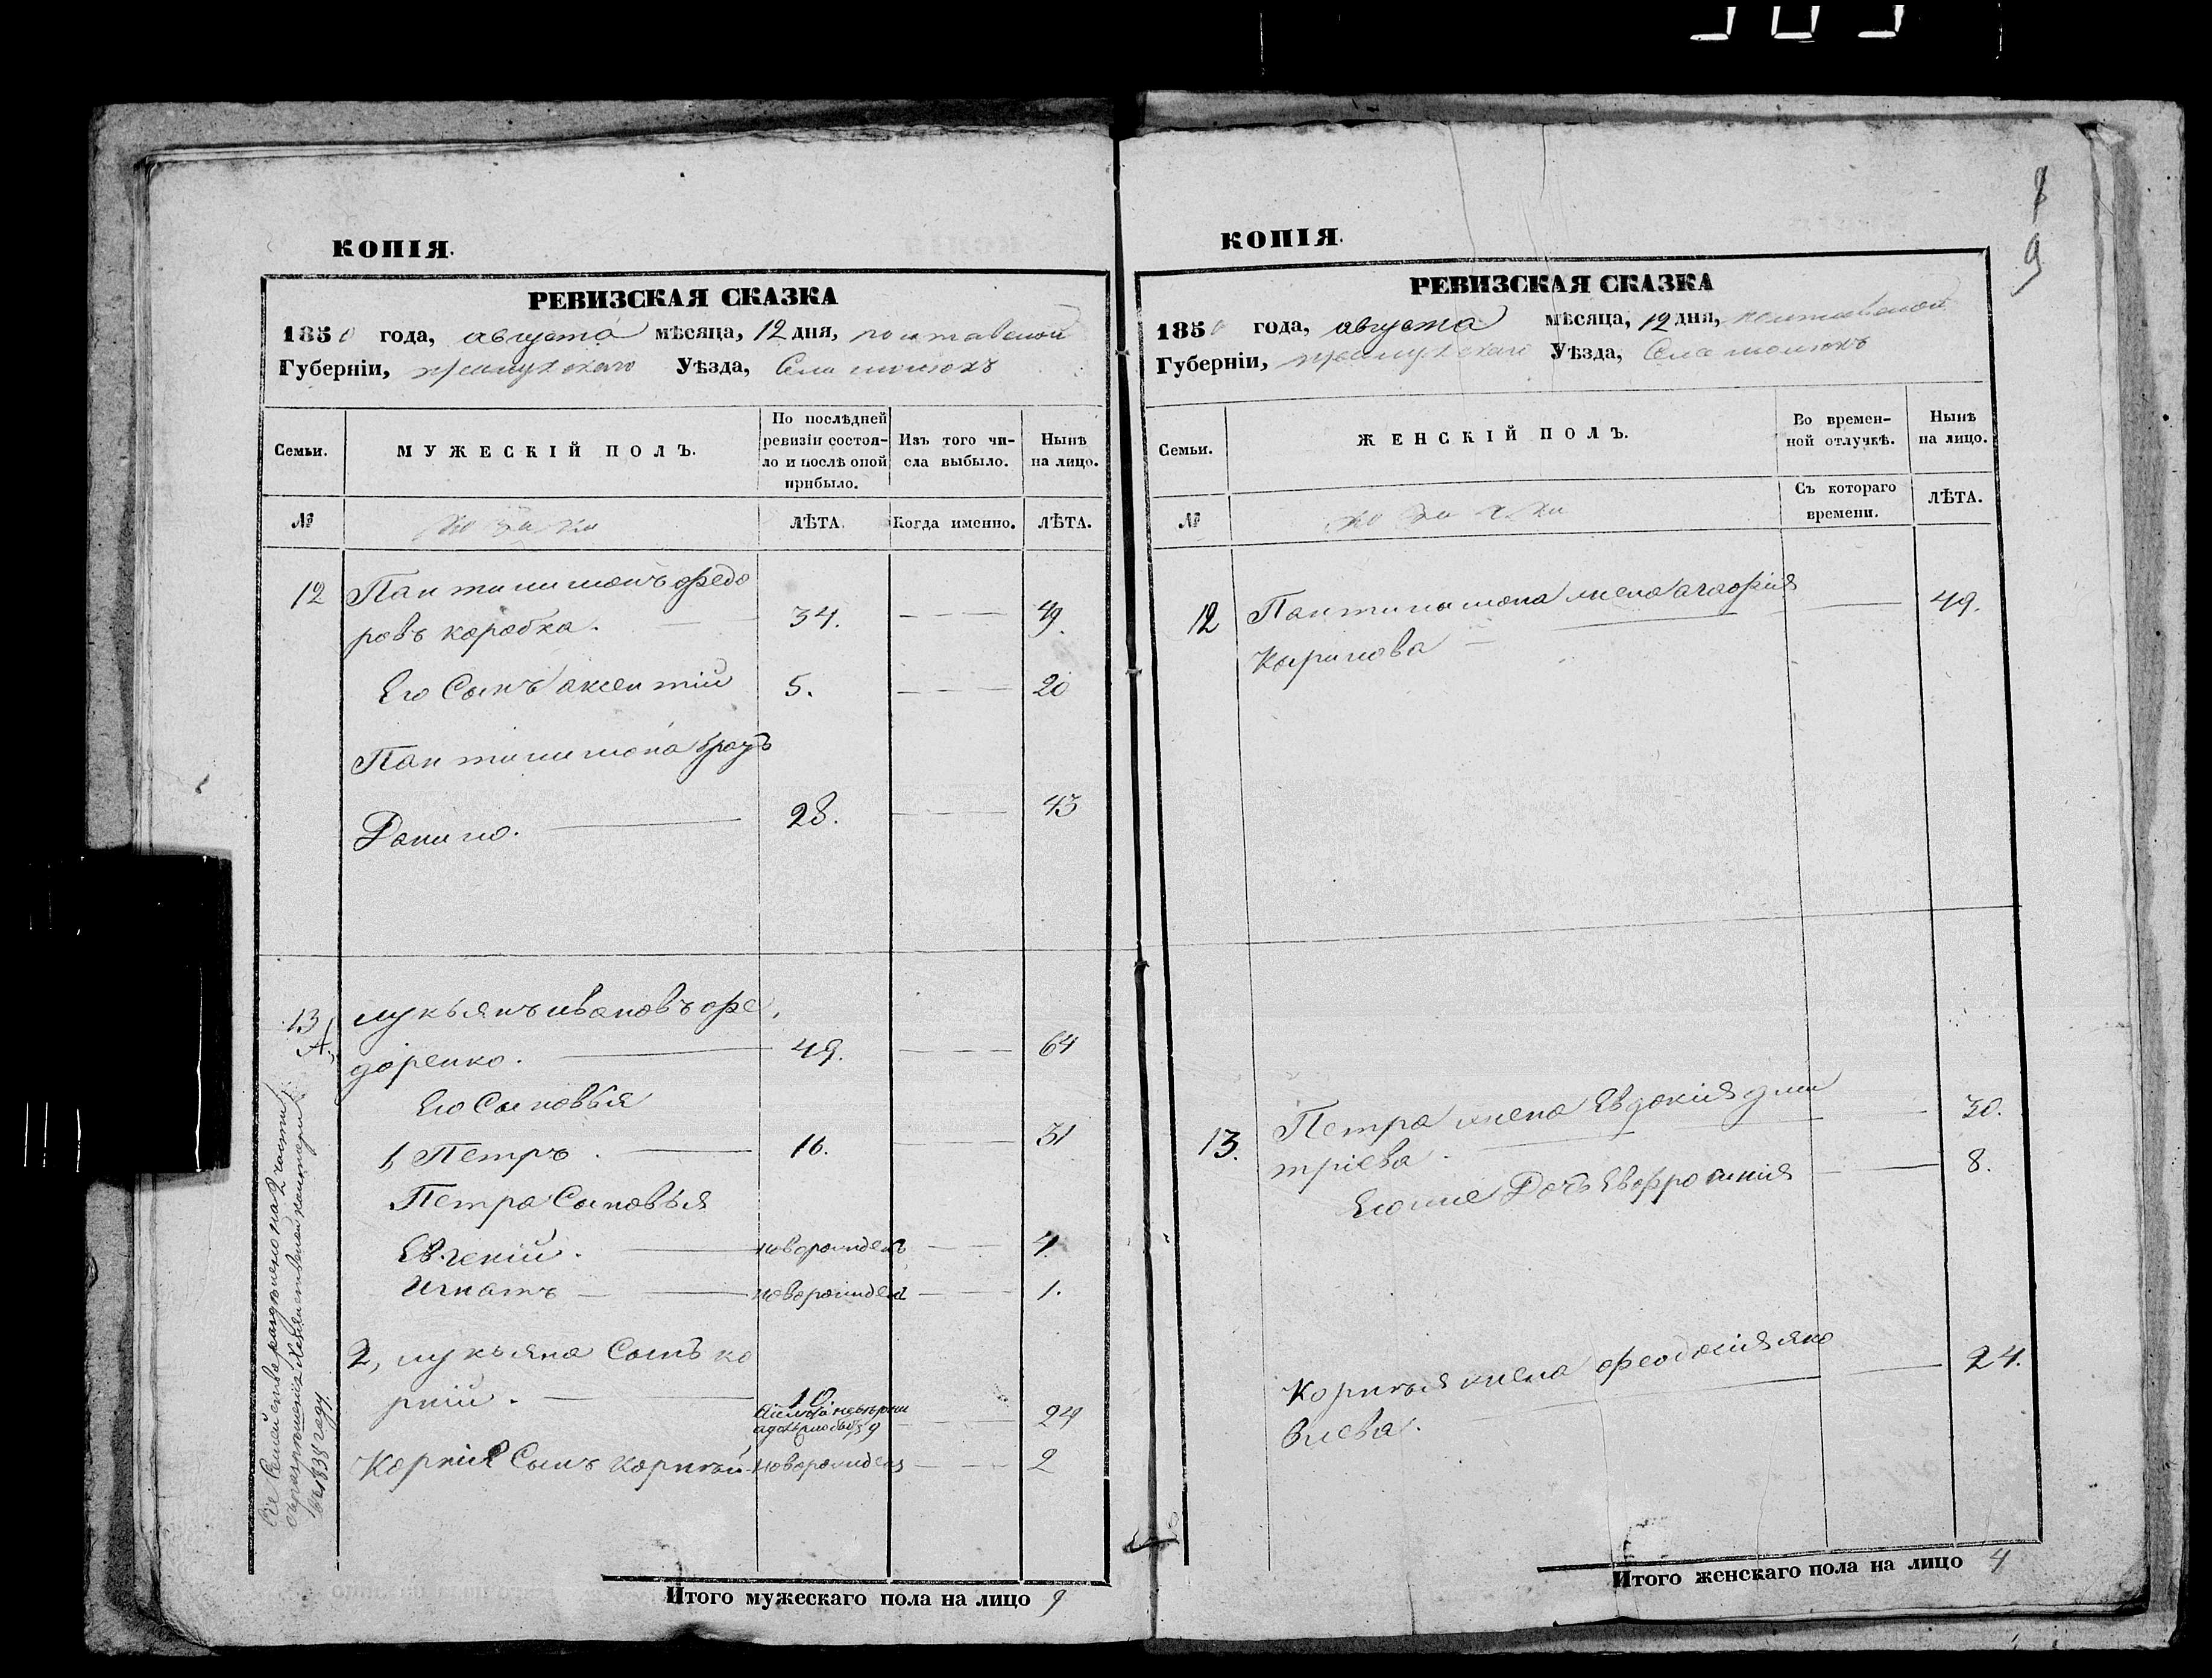 КОПІЯ.
РЕВИЗСКАЯ СКАЗКА
1850 года, августа мѣсяца, 12 дня, полтавской
Губерніи, прилуцкаго Уѣзда, Села
Семьи.
МУЖЕСКІЙ ПОЛЪ.
По послѣдней
ревизіи состоя-
ло и послѣ оной
прибыло.
Изъ того чи-
сла выбыло.
Нынѣ
на лицо.
№
козаки
ЛѣТА.
Когда именно.
ЛѣТА.
12
Пантилимонъ федо
ровъ коробка.
34.
49.
Его Сынъ аксентій
5.
20
Пантилимона братъ
Данило.
28.
43
13
А,
лукьянъ ивановъ фе,
доренко.
49.
64
Его Сыновья
1, Петръ.
16.
31
Петра Сыновья
Евгеній.
новорожденъ
4.
Игнатъ
новорожденъ
1.
2, лукьяна Сынъ ко
рній.
10
24
Корнія Сынъ Корнѣй.
новорожденъ
2
Сіе Семейство раздѣлено на 2 части
съ разрѣшенія Хозяйственной конторы
въ 1838 году.
Итого мужескаго пола на лицо 9
8
9
КОПІЯ.
РЕВИЗСКАЯ СКАЗКА
1850 года, августа мѣсяца, 12 дня, полтавской
Губерніи, прилуцкаго Уѣзда, Села
Семьи.
ЖЕНСКІЙ ПОЛЪ.
Во времен-
ной отлучкѣ.
Нынѣ
на лицо.
№
Съ котораго
времени.
ЛѣТА.
12
Пантилимона жена агафия
Кирилова
49.
13.
Петра жена Евдокия дми
тріева.
30.
Его же Дочь Евфросиния
8.
Корнѣя жена феодосия яко
влева.
24.
Итого женскаго пола на лицо 4